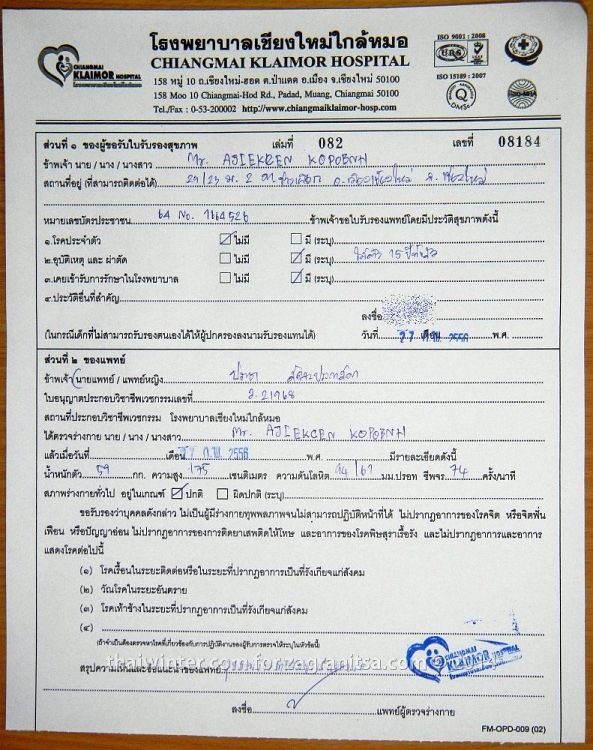 โรงพยาบาลเชียงใหม่ใกล้หมอ
CHIANGMAI KLAIMOR HOSPITAL
158 หมู่ 10 ถ.เชียงใหม่-ฮอด ต.ป่าแดด อ.เมือง จ.เชียงใหม่ 50100
158 Moo 10 Chiangmai-Hod Rd., Padad, Muang, Chiangmai 50100
Tel./Fax : 0-53-200002 http://www.chiangmaiklaimor-hosp.com
CHIANGMAI
KLAIMOR HOSPITAL
ISO 9001 : 2008
URS
ISO 15189 : 2007
DMSc
ส่วนที่ ๑ ของผู้ขอรับใบรับรองสุขภาพ เล่มที่ 082 เลขที่ 08184
ข้าพเจ้า นาย / นาง / นางสาว Mr. AJIEKCEN KOPOBNH
สถานที่อยู่ (ที่สามารถติดต่อได้) 29/23 ม. 2
หมายเลขบัตรประชาชน 64 No. 1164526 ข้าพเจ้าขอใบรับรองแพทย์โดยมีประวัติสุขภาพดังนี้
๑.โรคประจำตัว ไม่มี มี (ระบุ)
๒.อุบัติเหตุ และ ผ่าตัด ไม่มี มี (ระบุ) ไส้ติ่ง 15 ปี
๓.เคยเข้ารับการรักษาในโรงพยาบาล ไม่มี มี (ระบุ)
๔.ประวัติอื่นที่สำคัญ
ลงชื่อ
(ในกรณีเด็กที่ไม่สามารถรับรองตนเองได้ให้ผู้ปกครองลงนามรับรองแทนได้) วันที่ 27 เดือน ก.พ. 2556 พ.ศ.
ส่วนที่ ๒ ของแพทย์
ข้าพเจ้า นายแพทย์ / แพทย์หญิง
ใบอนุญาตประกอบวิชาชีพเวชกรรมเลขที่ ว.21968
สถานที่ประกอบวิชาชีพเวชกรรม โรงพยาบาลเชียงใหม่ใกล้หมอ
ได้ตรวจร่างกาย นาย / นาง / นางสาว Mr. AJIEKCEN KOPOBNH
แล้วเมื่อวันที่ เดือน 27 ก.พ. 2556 พ.ศ. มีรายละเอียดดังนี้
น้ำหนักตัว 59 กก. ความสูง 175 เซนติเมตร ความดันโลหิต /67 มม.ปรอท ชีพจร 74 ครั้ง/นาที
สภาพร่างกายทั่วไป อยู่ในเกณฑ์ ปกติ ผิดปกติ (ระบุ)
ขอรับรองว่าบุคคลดังกล่าว ไม่เป็นผู้มีร่างกายทุพพลภาพจนไม่สามารถปฏิบัติหน้าที่ ได้ ไม่ปรากฏอาการของโรคจิต หรือจิตฟั่น
เฟือน หรือปัญญาอ่อน ไม่ปรากฏอาการของการติดยาเสพติดให้โทษ และอาการของโรคพิษสุราเรื้อรัง และไม่ปรากฏอาการและอาการ
แสดงโรคต่อไปนี้
(๑) โรคเรื้อนในระยะติดต่อหรือในระยะที่ปรากฏอาการเป็นที่รังเกียจแก่สังคม
(๒) วัณโรคในระยะอันตราย
(๓) โรคเท้าช้างในระยะที่ปรากฏอาการเป็นที่รังเกียจแก่สังคม
(๔)
(ถ้าจำเป็นต้องตรวจหาโรคที่เกี่ยวข้องกับการปฏิบัติงานของผู้รับการตรวจให้ระบุในหัวข้อนี้)
CHIANGMAI
KLAIMOR HOSPITAL
thaiwinter.com
forzagranitsa.com
สรุปความเห็นและข้อแนะนำของแพทย์
ลงชื่อ แพทย์ผู้ตรวจร่างกาย
FM-OPD-009 (02)